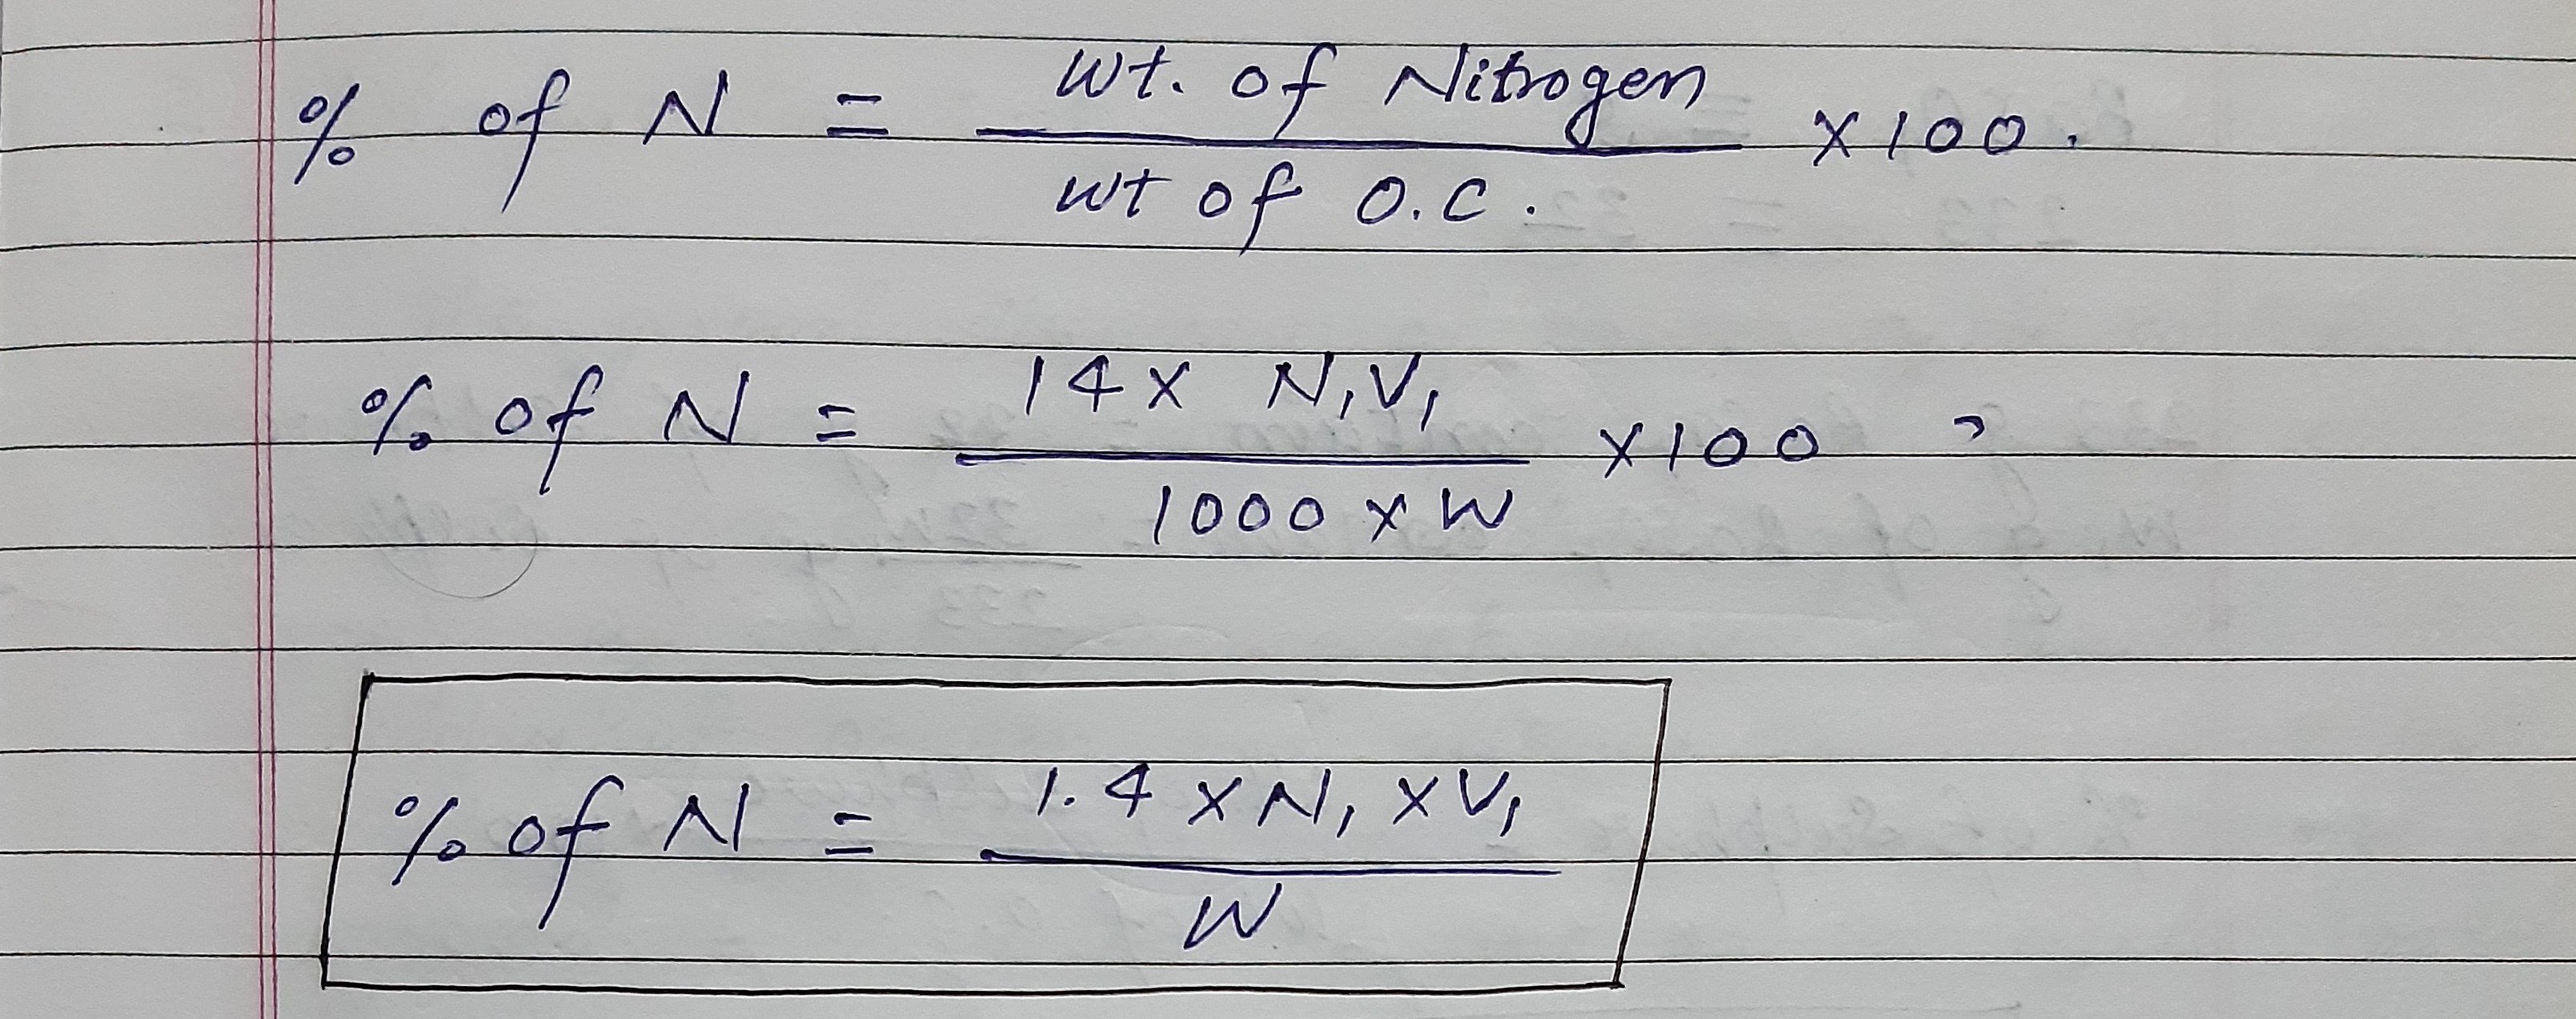 % of N = wt. of Nitrogen / wt of O.C. x100.
% of N = 14x N₁V₁ / 1000 x W x100 ,
% of N = 1.4 x N₁ x V₁ / W